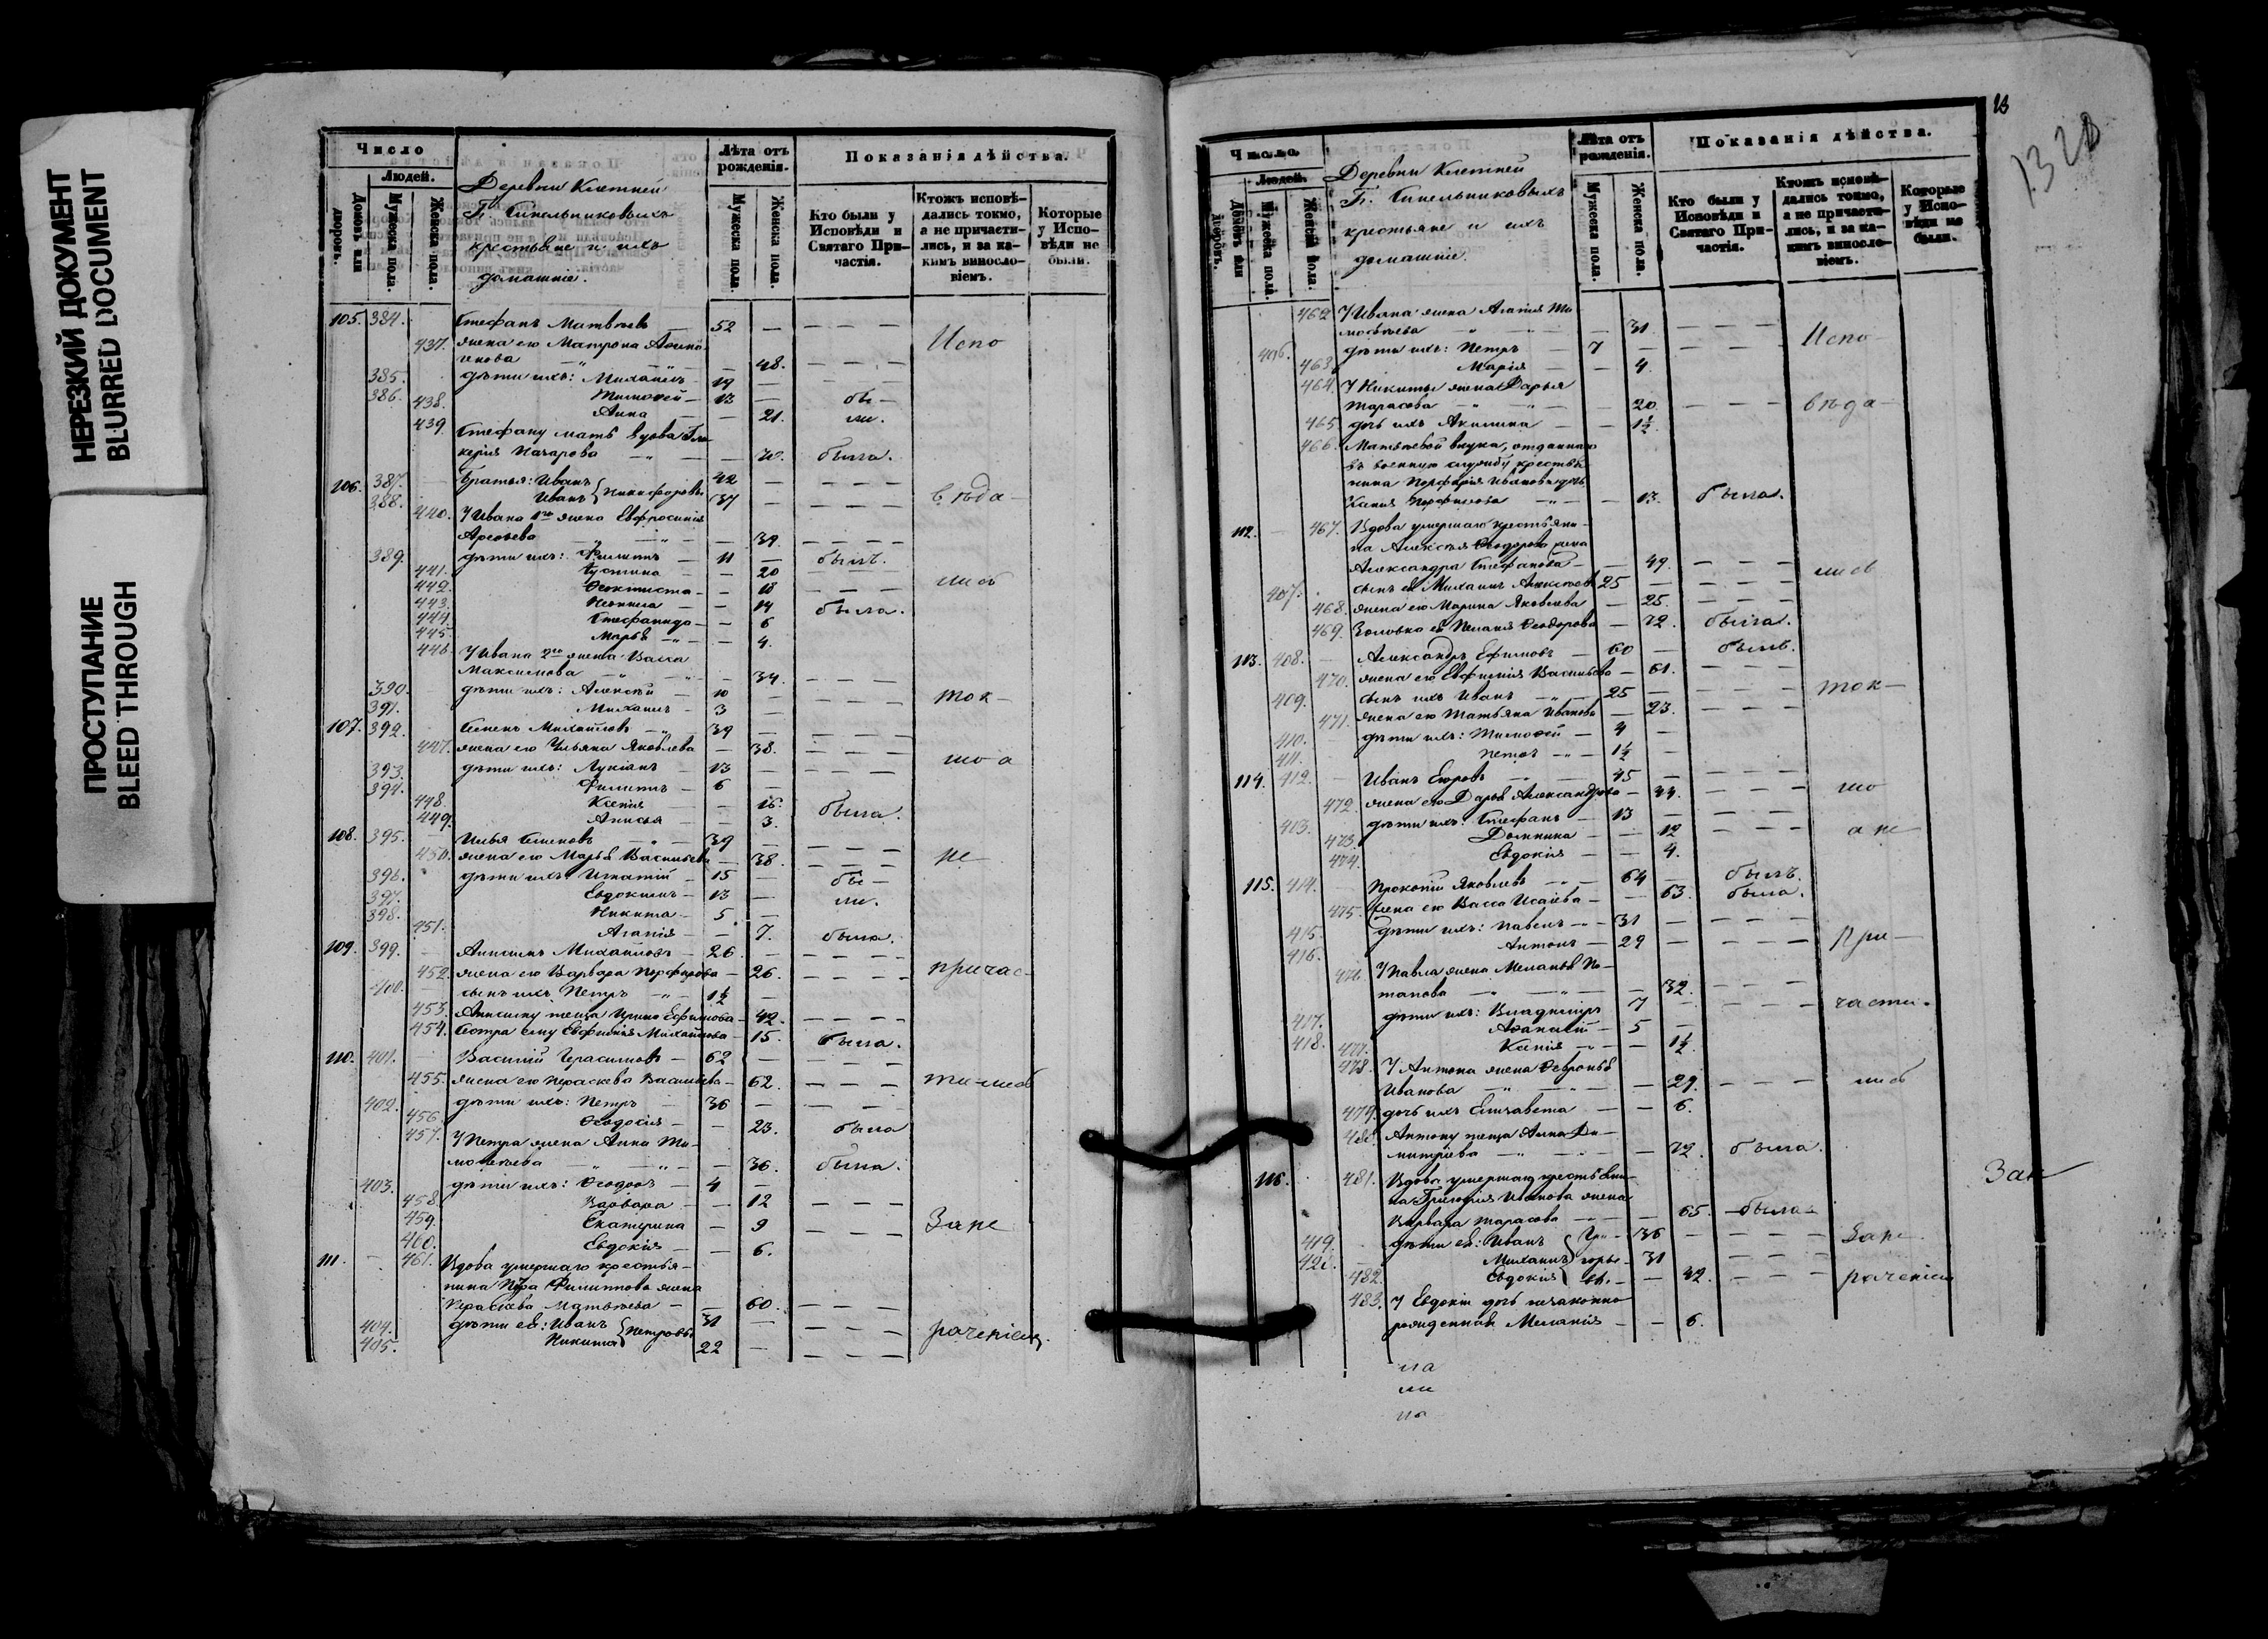 НЕРЕЗКИЙ ДОКУМЕНТ
BLURRED DOCUMENT
ПРОСТУПАНИЕ
BLEED THROUGH
Число
Людей.
Домовъ или дворовъ.
Мужеска пола.
Женска пола.
Деревни Клетней
крестьяне и ихъ
домашніе.
Лѣта отъ рожденія.
Мужеска пола.
Женска пола.
Показанія дѣйства.
Кто были у Исповѣди и Святаго Причастія.
Ктожъ исповѣдались токмо, а не причастились, и за какимъ винословіемъ.
Которые у Исповѣди не были.
105. 384. Стефанъ Матвѣевъ — 52 —
437. жена его Матрона
— 48. Испо
385. дѣти ихъ: Михаилъ — 19 —
386. Тимоѳей — 13 — бы-
438. Анна — — 21. ли.
439. Стефану мать вдова Гли-
керія Назарова — была.
106. 387. Братья: Иванъ 42 —
388. Иванъ Никифоровы 37 — вѣда-
440. У Ивана 1го жена Евфросинія
— 39.
389. дѣти ихъ: Филиппъ — 11 — былъ.
441. Іустина — — 20
442. Ѳеоктиста — — 18 лись
443. — — 14 была.
444. Стефанида — — 6
445. Марья — — 4.
446. У Ивана 2го жена Васса
Максимова — 34.
390. дѣти ихъ: Алексѣй — 10 — ток-
391. Михаилъ — 3 —
107. 392. Семенъ Михайловъ — 39 —
447. жена его Ульяна Яковлева — 38. мо а
393. дѣти ихъ: Лукіанъ — 13 —
394. Филиппъ — 6 —
448. Ксенія — — 16. была.
449. Анисья — — 3.
108. 395. Илья Семеновъ — 39 —
450. жена его Марья Васильева — 38. не-
396. дѣти ихъ: Игнатій — 15 — бы-
397. Евдокимъ — 13 — ли.
398. Никита — 5 —
451. Агапія — — 7. была.
109. 399. Анисимъ Михайловъ — 26. —
452. жена его Варвара Порфирова — 26. причас-
400. сынъ ихъ Петръ — 1½ —
453. Анисиму теща Ирина Ефимова — 42.
454. Сестра ему Евфимія Михайлова — 15. была.
110. 401. Василій Герасимовъ — 62 —
455. жена его Параскева Васильева — 62. ти-лись
402. дѣти ихъ: Петръ — 36 —
456. Ѳеодосія — — 23. была
457. У Петра жена Анна Ти-
моѳеева — 36. была.
403. дѣти ихъ: Ѳеодоръ — 4 —
458. Варвара — — 12
459. Екатерина — — 9 За не
460. Евдокія — — 6.
111. — 461. Вдова умершаго крестья-
нина Петра Филиппова жена
Матвѣева — — 60.
404. дѣти ея: Иванъ 31 — раченіемъ.
405. Никита Петровы 22 —
13
Число.
Людей.
Домовъ или дворовъ.
Мужеска пола.
Женска пола.
Деревни Клетней
крестьяне и ихъ
домашніе.
Лѣта отъ рожденія.
Мужеска пола.
Женска пола.
Показанія дѣйства.
Кто были у Исповѣди и Святаго Причастія.
Ктожъ исповѣдались токмо, а не причастились, и за какимъ винословіемъ.
Которые у Исповѣди не были.
462 У Ивана жена Агапія Ти-
моѳеева — 31. Испо
406. дѣти ихъ: Петръ — 7 —
463. Марія — — 4.
464. У Никиты жена Дарья
Тарасова — 20. вѣда-
465. дочь ихъ Акилина — — 1½.
466. Матвѣевой внука, отданнаго
въ военную службу крестья-
нина Порфирія Иванова дочь
Ксенія Порфирова — — 13. была.
112. — 467. Вдова умершаго крестьяни-
на Алексѣя Ѳеодорова жена
Александра Стефанова — — 49. лись
407. сынъ ея Михаилъ Алексѣевъ 25 —
468. жена его Марина Яковлева — 25.
469. Золовка ея Пелагія Ѳеодорова — 72. была.
113. 408. Александръ Ефимовъ — 60 — былъ.
470. жена его Евфимія Васильева — 61.
409. сынъ ихъ Иванъ — 25 — ток-
471. жена его Татьяна Иванова — 23.
410. дѣти ихъ: Тимоѳей — 4 —
411. Петръ — 1½ —
114. 412. Иванъ Егоровъ — 45 —
472. жена его Дарья Александрова — 44. мо
413. дѣти ихъ: Стефанъ — 13 —
473. Домнина — — 12 а не-
474. Евдокія — — 4.
115. 414. Прокопій Яковлевъ — 64 — былъ.
475. жена его Васса Исаіева — — 63. была.
415. дѣти ихъ: Павелъ — 31 —
416. Антонъ — 29 — При-
476. У Павла жена Меланья По-
тапова — — 32.
417. дѣти ихъ: Владиміръ 7 — части-
418. Аѳанасій — 5 —
477. Ксенія — — 1½.
478. У Антона жена Ѳевронья
Иванова — — 29. лись
479. дочь ихъ Елисавета — — 6.
480. Антону теща Анна Ди-
митріева — — 72. была.
116. 481. Вдова умершаго крестьяни-
на Григорія Иванова жена
Варвара Тарасова — 65. была
419. дѣти ея: Иванъ Гри- 36 — За не
420. Михаилъ горье- 31
482. Евдокія вы. — 42. раченіемъ
483. У Евдокіи дочь незаконно
рожденная Меланія — — 6.
Зап
на
ли
на